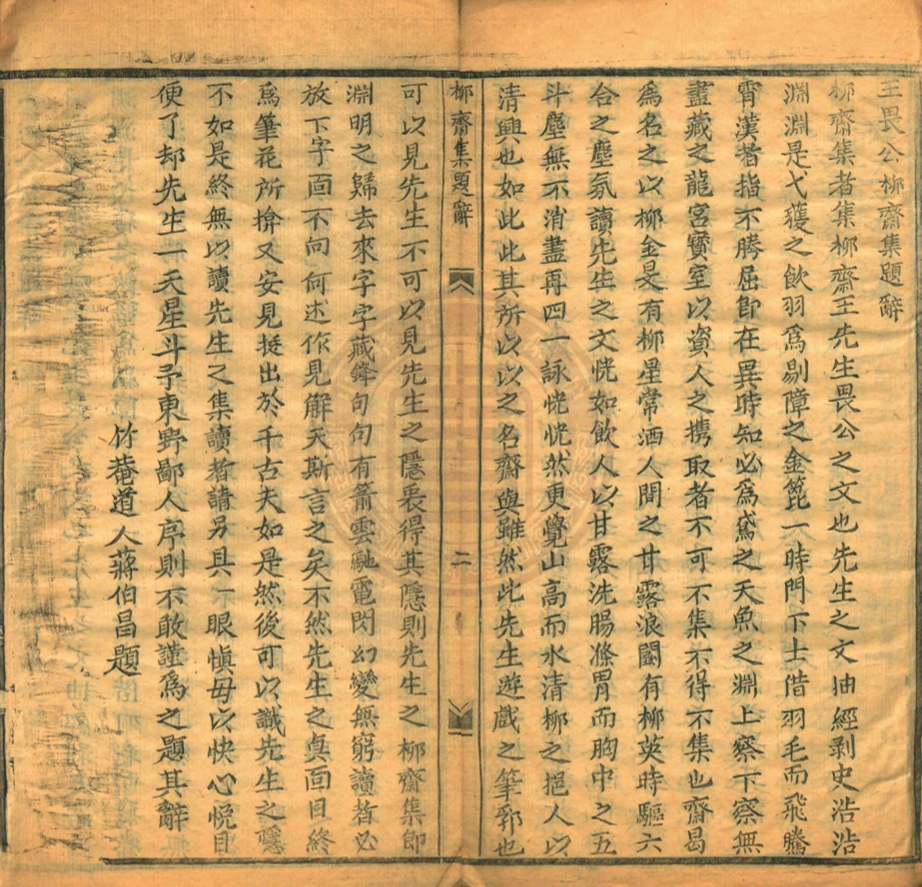 王畏公柳齋集題辭
柳齋集者集柳齋王先生畏公之文也先生之文抽經剥史浩浩
淵淵是弋獲之飲羽爲剔障之金箆一時門下士借羽毛而飛騰
霄漢者指不勝屈即在異時知必爲鳶之天魚之淵上察下察無
盡藏之龍宮寳室以資人之携取者不可不集不得不集也齋曷
爲名之以柳金昃有柳星常洒人間之甘露浪闘有柳英時驅六
合之塵氛讀先生之文恍如飲人以甘露洗腸滌胃而胸中之五
斗塵無不消盡再四一詠恍恍然更覺山高而水清柳之挹人以
清興也如此此其所以以之名齋與雖然此先生遊戲之筆乎也
柳齋集題辭
二
可以見先生不可以見先生之隱衷得其隱則先生之柳齋集即
淵明之歸去來字字藏鋒句句有箭雲馳電閃幻變無窮讀者必
放下字面不向何述作見解天斯言之矣不然先生之真面目終
爲筆花所揜又安見挺出於千古夫如是然後可以識先生之隱
不如是終無以讀先生之集讀者請另具一眼愼毋以快心悦目
便了却先生一天星斗予東野鄙人序則不敢謹爲之題其辭
竹菴道人蔣伯昌題